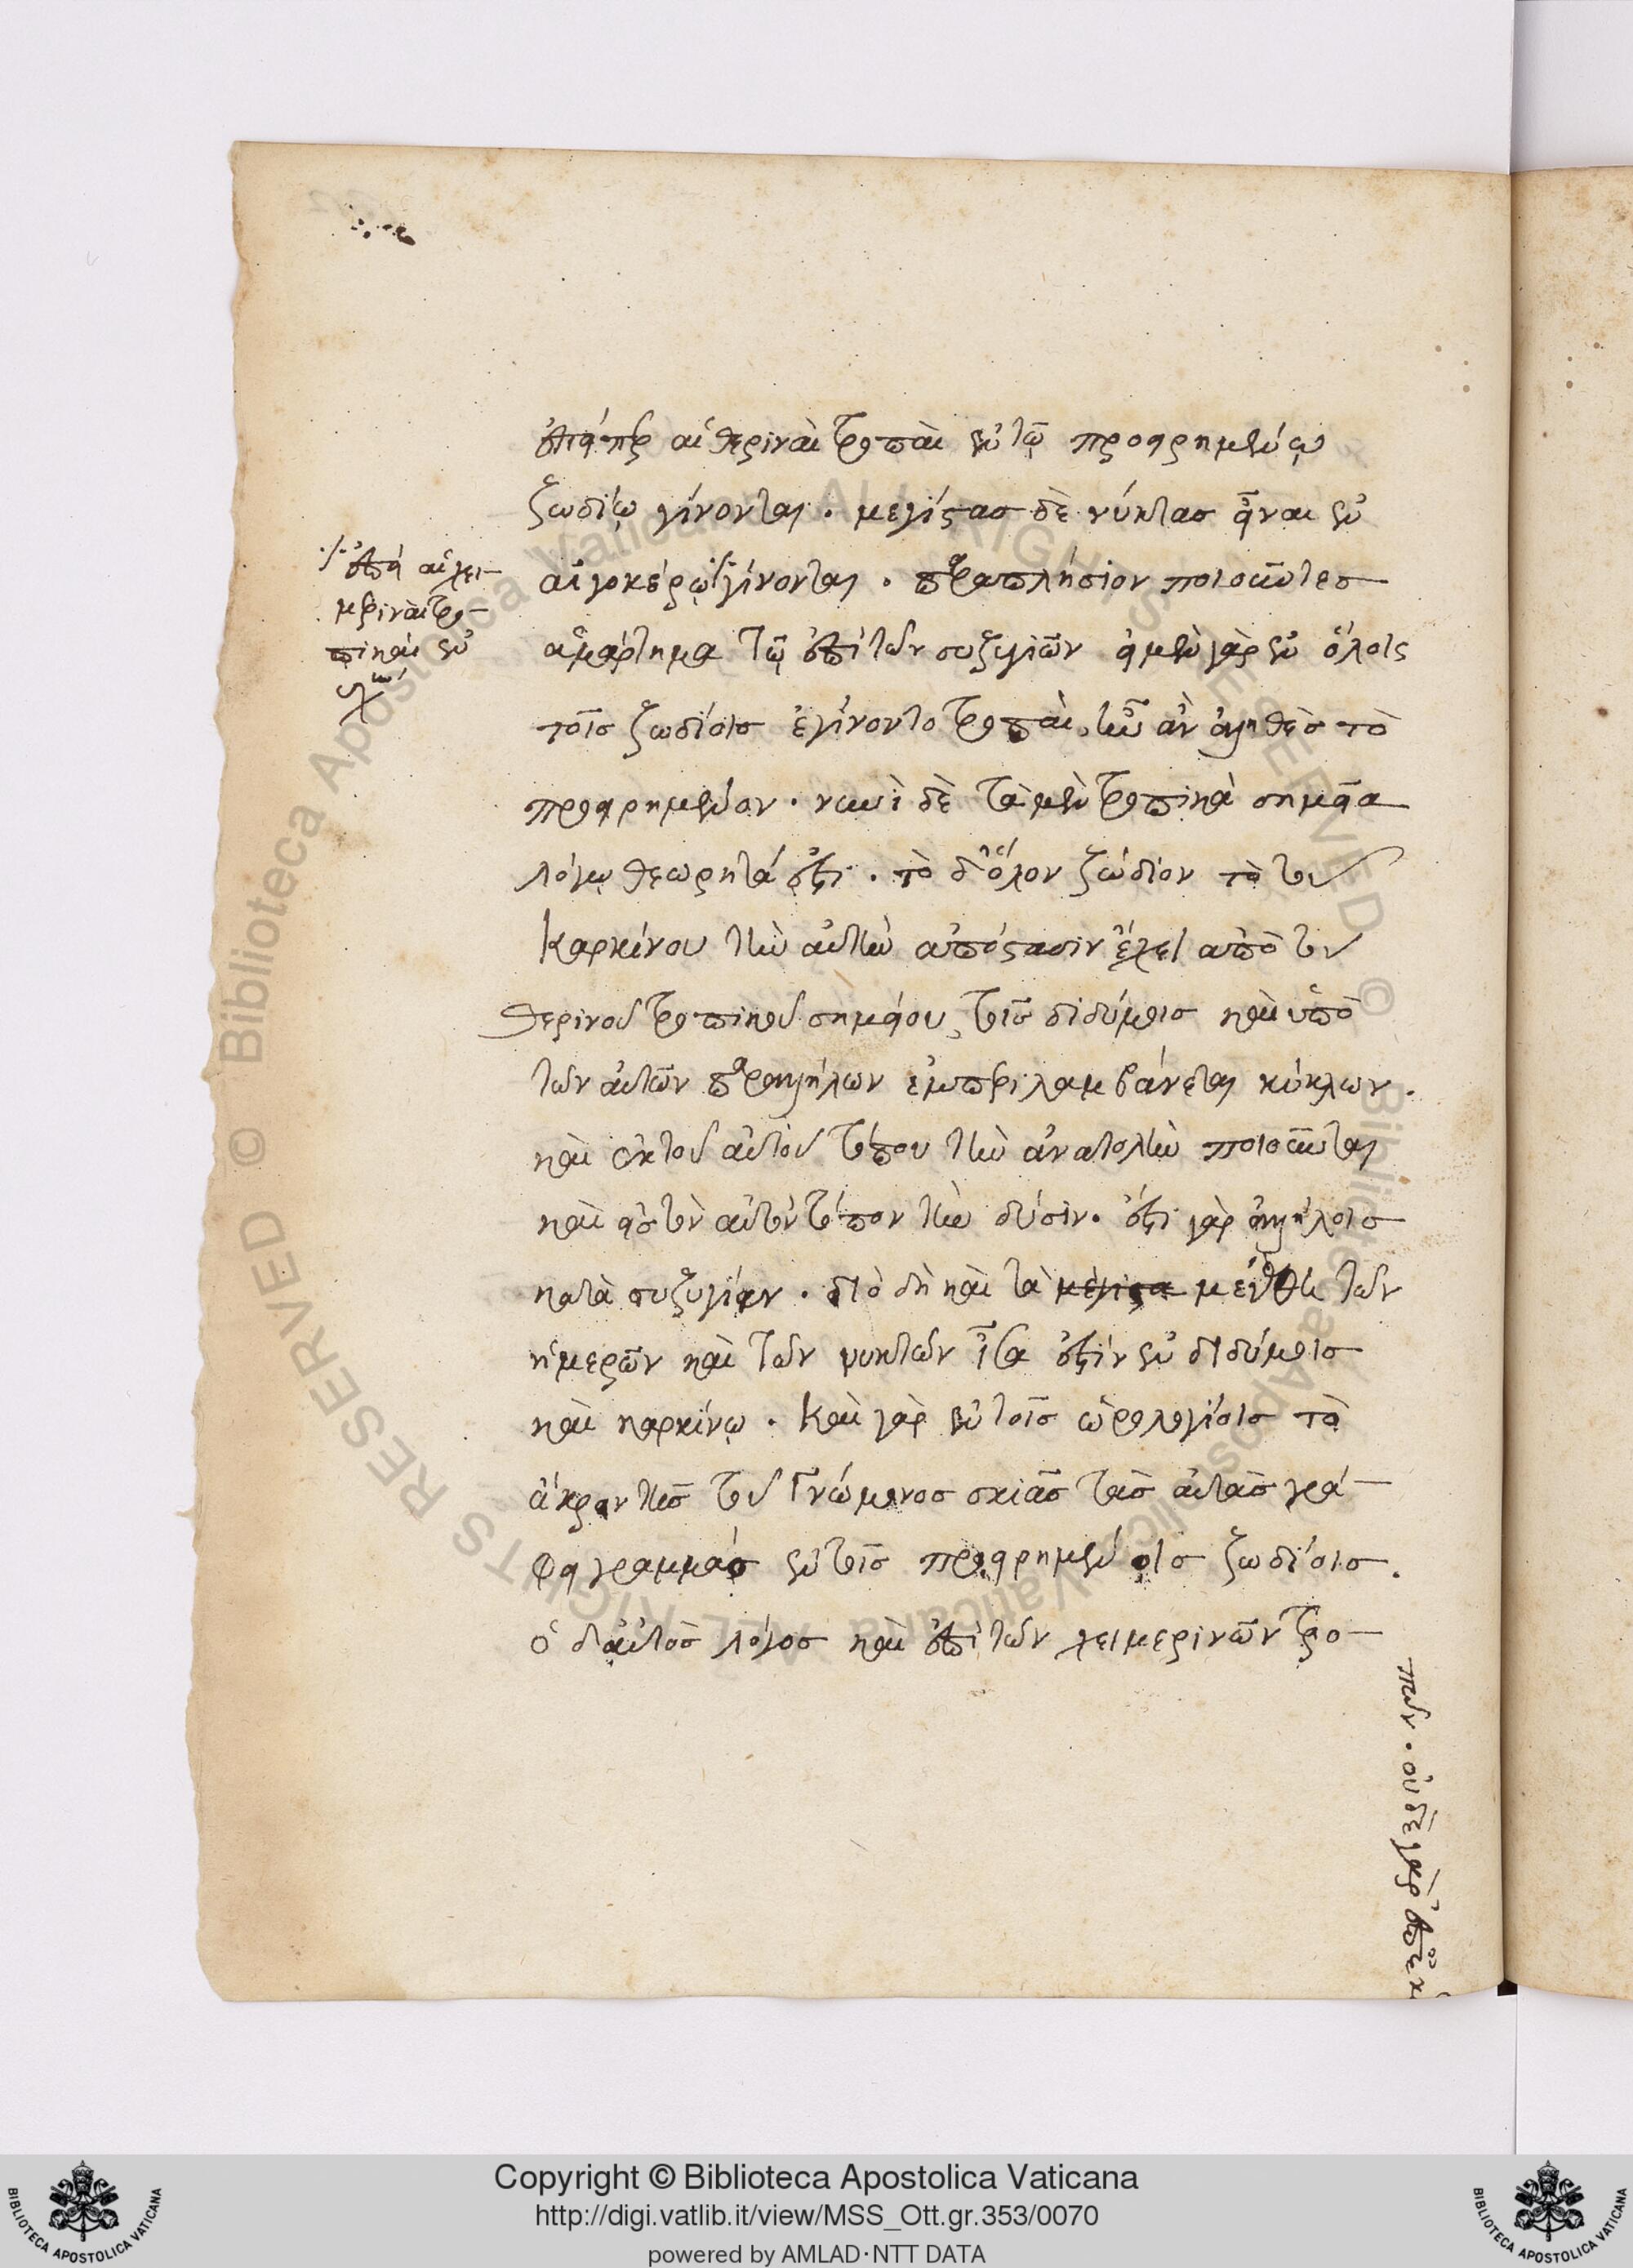 ἐπειδήπερ αἱ θεριναὶ τροπαὶ ἐν τῷ προειρημένῳ
ζωδίῳ γίνονται. μεγίστας δὲ νύκτας εἶναι ἐν
αἰγοκέρῳ γίνονται. παραπλήσιον ποιοῦντες
ἁμάρτημα τῷ ἐπὶ τῶν συζυγιῶν εἰ μὲν γὰρ ἐν ὅλοις
τοῖς ζωδίοις ἐγίνοντο τροπαὶ, ἦν ἂν ἀληθὲς τὸ
προειρημένον. νυνὶ δὲ τὰ μὲν τροπικὰ σημεῖα
λόγῳ θεωρητά ἐστι. τὸ δ' ὅλον ζώδιον τὸ τοῦ
Καρκίνου τὴν αὐτὴν ἀπόστασιν ἔχει ἀπὸ τοῦ
θερινοῦ τροπικοῦ σημείου, τοῖς διδύμοις καὶ ὑπὸ
τῶν αὐτῶν παραλλήλων ἐμπεριλαμβάνεται κύκλων.
καὶ ἐκ τοῦ αὐτοῦ τόπου τὴν ἀνατολὴν ποιοῦνται
καὶ εἰς τὸν αὐτὸν τόπον τὴν δύσιν. ἔστι γὰρ ἀλλήλοις
κατὰ συζυγίαν. διὸ δὴ καὶ τὰ μέγιστα μεγέθη τῶν
ἡμερῶν καὶ τῶν νυκτῶν ἴσα ἐστὶν ἐν διδύμοις
καὶ καρκίνῳ. Καὶ γὰρ ἐν τοῖς ὡρολογίοις τὸ
ἄκρον τῆς τοῦ Γνώμονος σκιᾶς τὰς αὐτὰς γρά-
φει γραμμὰς ἐν τοῖς προειρημένοις ζωδίοις.
ὁ δ' αὐτὸς λόγος καὶ ἐπὶ τῶν χειμερινῶν τρο-
πῶν. οὐδὲ γὰρ
ἐπεὶ αἱ χει-
μεριναὶ τρο-
πικαὶ ἐν
Copyright © Biblioteca Apostolica Vaticana
http://digi.vatlib.it/view/MSS_Ott.gr.353/0070
powered by AMLAD·NTT DATA
BIBLIOTECA APOSTOLICA VATICANA
BIBLIOTECA APOSTOLICA VATICANA
© Biblioteca Apostolica Vaticana ALL RIGHTS RESERVED © Biblioteca Apostolica Vaticana ALL RIGHTS RESERVED